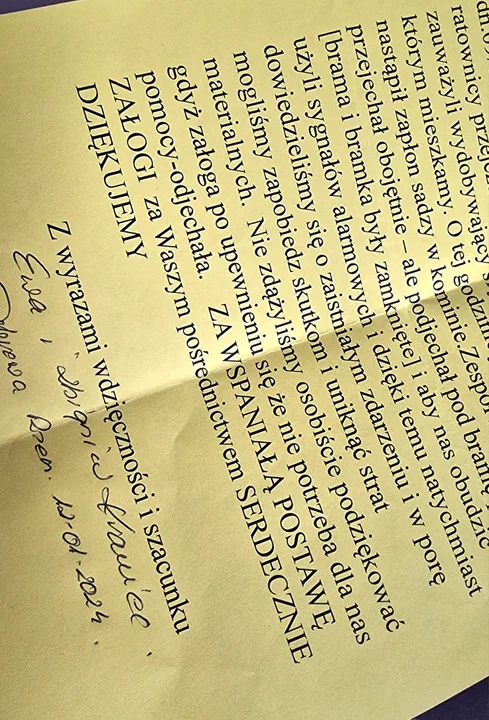 dn.0
ratownicy
zauważyli wydobywający
którym mieszkamy. O tej
nastąpił zapłon sadzy w kominie
przejechał obojętnie – ale podjechał pod bramę
[brama i bramka były zamknięte] i aby nas obudzić
użyli sygnałów alarmowych i dzięki temu natychmiast
dowiedzieliśmy się o zaistniałym zdarzeniu i w porę
mogliśmy zapobiedz skutkom i uniknąć strat
materialnych. Nie zdążyliśmy osobiście podziękować
gdyż załoga po upewnieniu się że nie potrzeba dla nas
pomocy-odjechała. ZA WSPANIAŁĄ POSTAWĘ
ZAŁOGI za Waszym pośrednictwem SERDECZNIE
DZIĘKUJEMY
Z wyrazami wdzięczności i szacunku
Ewa i Zbigniew Krawiec.